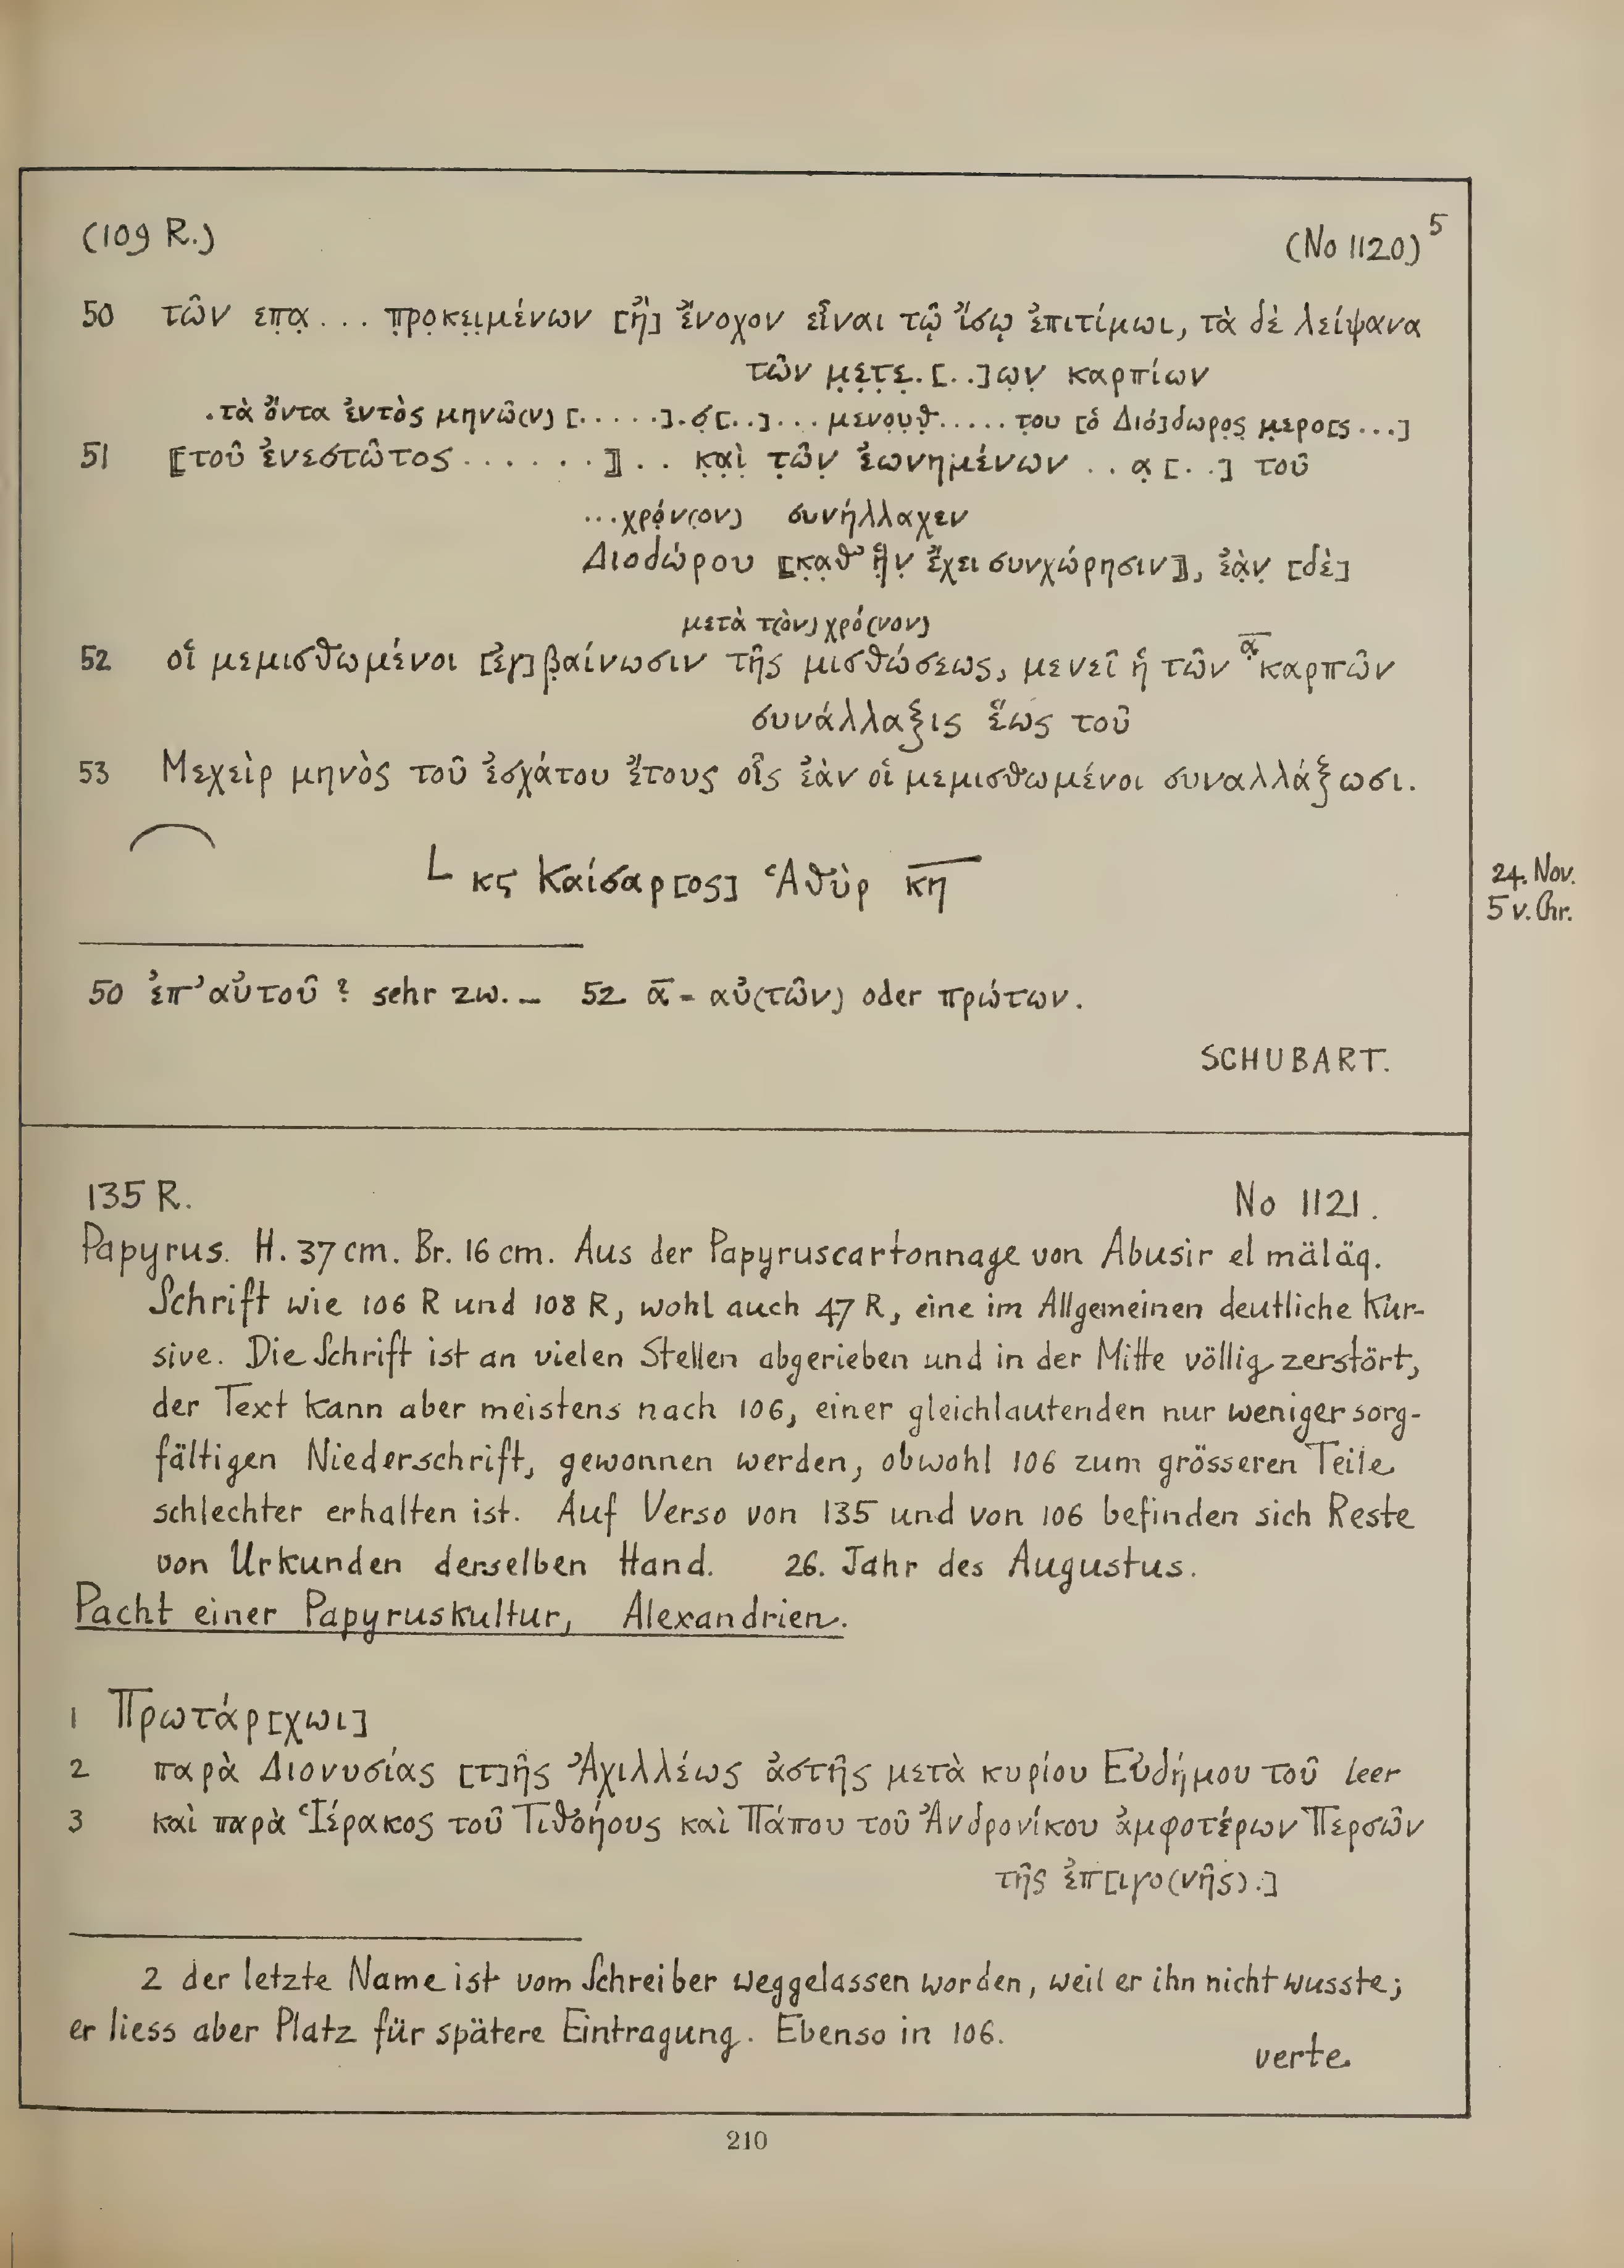 (109 R.) (No 1120) 5
50 τῶν επ̣α̣ . . . π̣ρ̣ο̣κ̣ε̣ι̣μένων [ἢ] ἔνοχον εἶναι τῷ ἴσῳ ἐπιτίμωι, τὰ δὲ λείψανα
τῶν μ̣ε̣τ̣ε̣. [. .]ω̣ν̣ καρπίων
.τὰ ὄντα ἐντὸς μηνῶ(ν) [. . . . .].σ̣[. .]. . . μενο̣υ̣θ̣. . . . . τ̣ου [ὁ Διό]δωρο̣ς̣ μ̣ερο[ς . . .]
51 ⟦τοῦ ἐνεστῶτος . . . . . . ⟧ . . κ̣α̣ὶ̣ τ̣ῶ̣ν̣ ἐωνημένων . . α̣ [. .] τοῦ
. . . χρό̣ν(ον) συνήλλαχεν
Διοδώρου ⟦κ̣α̣θ’ ἣ̣ν̣ ἔχει συνχώρησιν⟧, ἐὰ̣ν̣ [δὲ]
μετὰ τ(ὸν) χρό(νον)
52 οἱ μεμισθωμένοι [ἐγ]β̣αίνωσιν τῆς μισθώσεως, μενεῖ ἡ τῶν α̣̅ καρπῶν
συνάλλαξις ἕως τοῦ
53 Μεχεὶρ μηνὸς τοῦ ἐσχάτου ἔτους οἷς ἐὰν οἱ μεμισθωμένοι συναλλάξωσι.
L κς Καίσαρ[ος] Ἁθὺρ κ̅η̅
24. Nov.
5 v. Chr.
50 ἐπ’ αὐτοῦ? sehr zw. – 52 α̅ = αὐ(τῶν) oder πρώτων.
SCHUBART.
135 R. No 1121.
Papyrus. H. 37 cm. Br. 16 cm. Aus der Papyruscartonnage von Abusir el mäläq.
Schrift wie 106 R und 108 R, wohl auch 47 R, eine im Allgemeinen deutliche Kur-
sive. Die Schrift ist an vielen Stellen abgerieben und in der Mitte völlig zerstört,
der Text kann aber meistens nach 106, einer gleichlautenden nur weniger sorg-
fältigen Niederschrift, gewonnen werden, obwohl 106 zum grösseren Teile
schlechter erhalten ist. Auf Verso von 135 und von 106 befinden sich Reste
von Urkunden derselben Hand. 26. Jahr des Augustus.
Pacht einer Papyruskultur, Alexandrien.
1 Πρωτάρ[χωι]
2 παρὰ Διονυσίας [τ]ῆς Ἀχιλλέως ἀστῆς μετὰ κυρίου Εὐδήμου τοῦ leer
3 καὶ παρὰ Ἱέρακος τοῦ Τιθοήους καὶ Πάπου τοῦ Ἀνδρονίκου ἀμφοτέρων Περσῶν
τῆς ἐπ[ιγο(νῆς).]
2 der letzte Name ist vom Schreiber weggelassen worden, weil er ihn nicht wusste;
er liess aber Platz für spätere Eintragung. Ebenso in 106.
verte
210